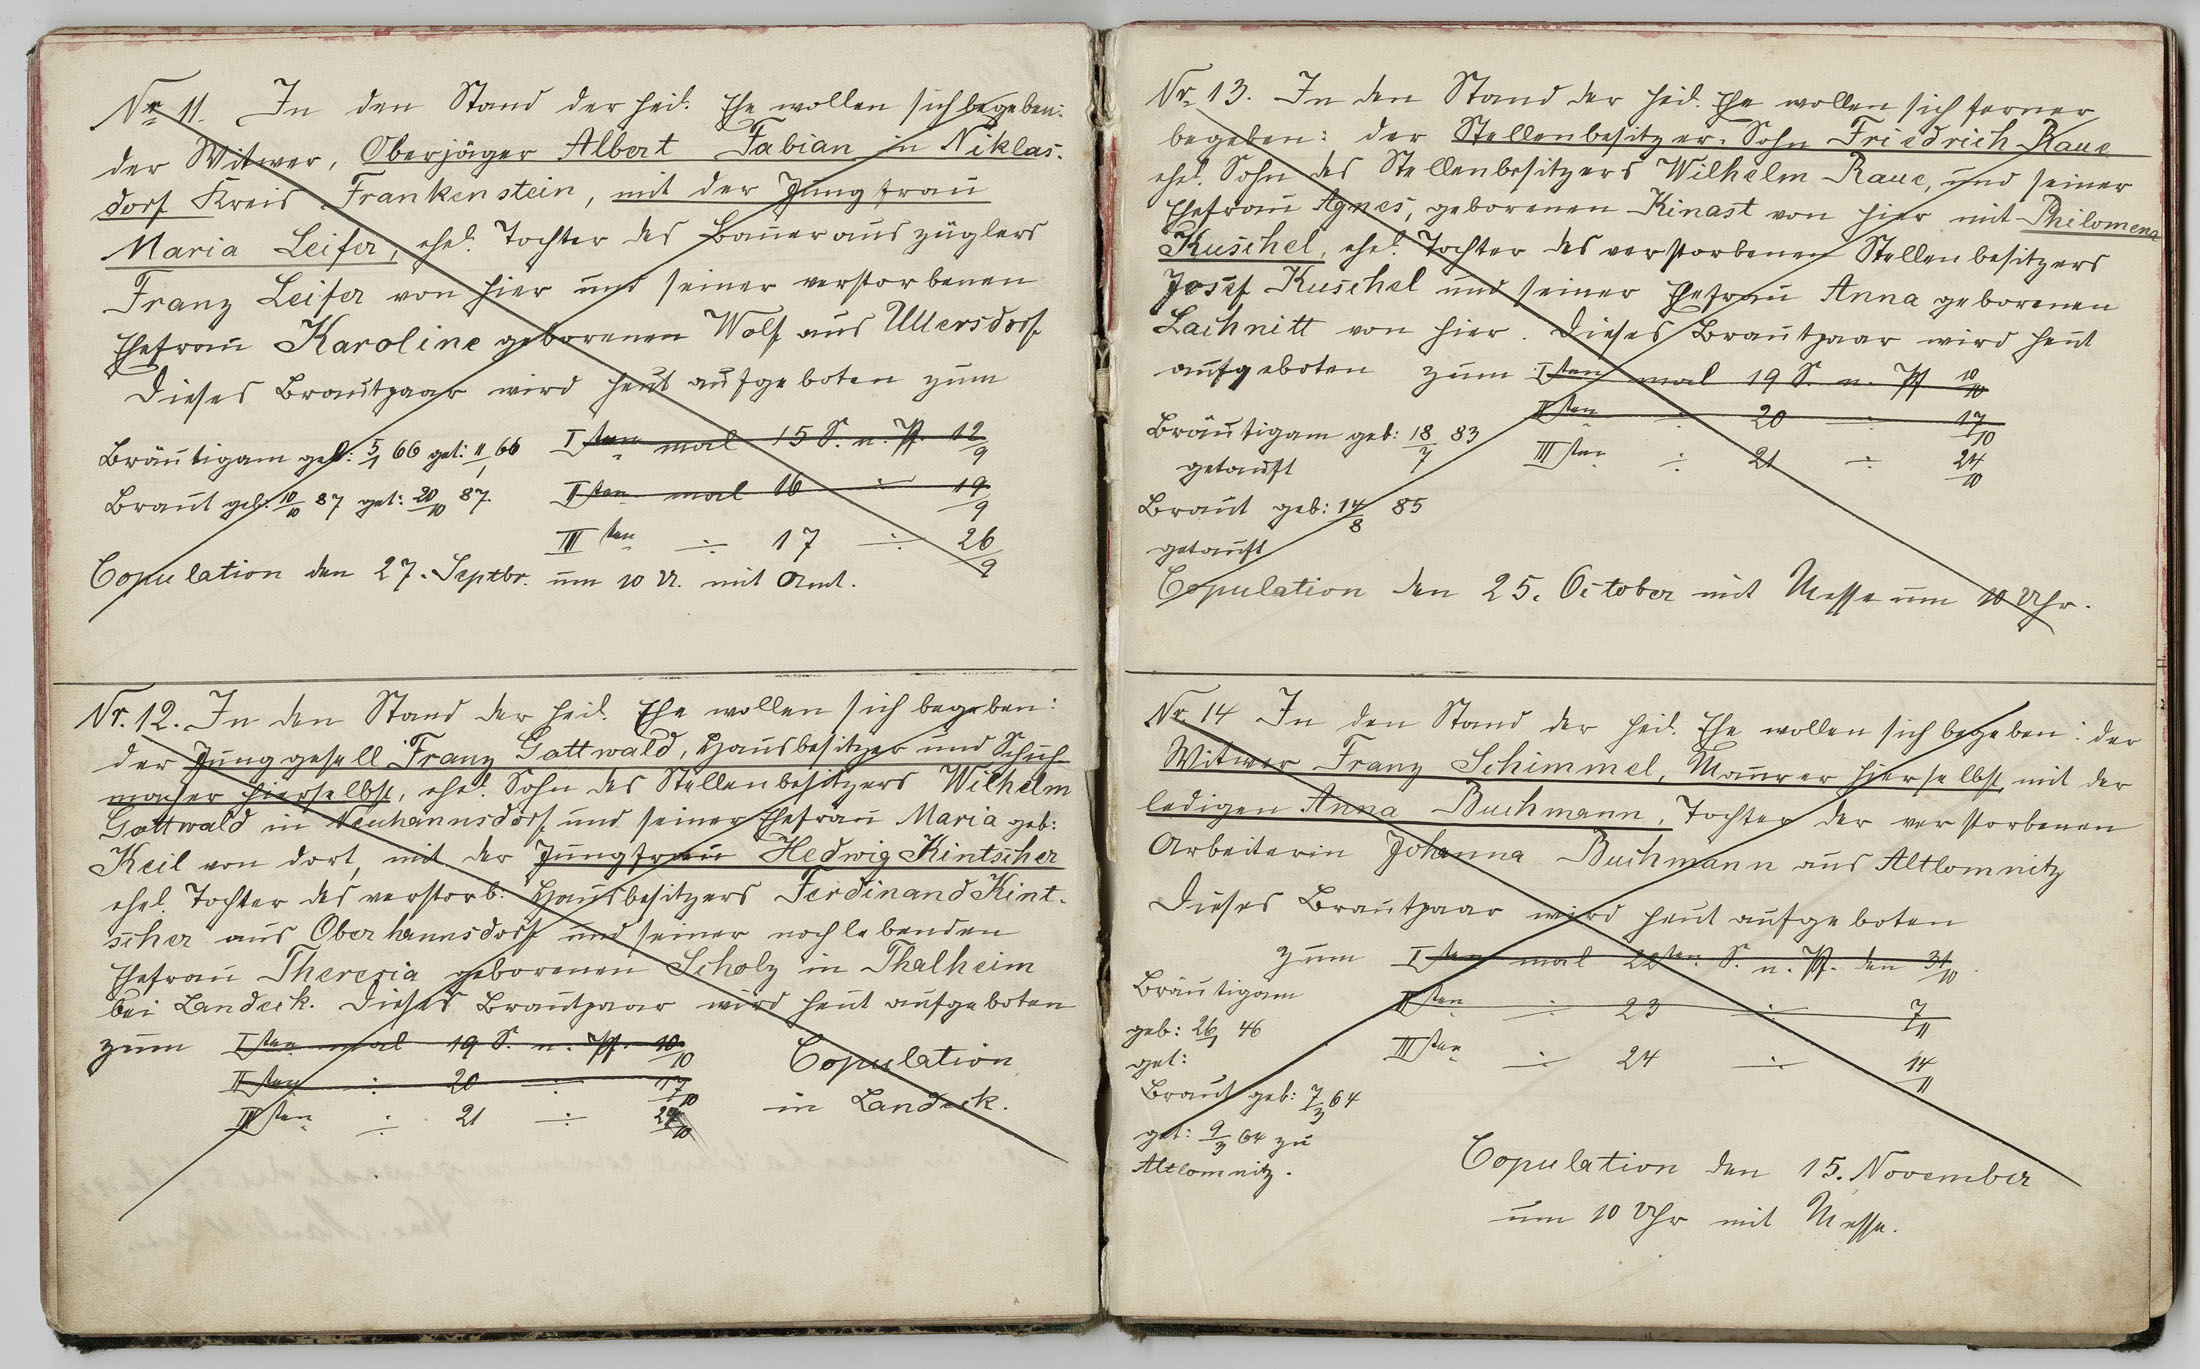 Nr. 11. In den Stand der heil. Ehe wollen sich begeben:
der Witwer, Oberjäger Albert Fabian in Niklas-
dorf Kreis Frankenstein, mit der Jungfrau
Maria Leifer, ehel. Tochter des Bauerauszüglers
Franz Leifer von hier und seiner verstorbenen
Ehefrau Karoline geborenen Wolf aus Ullersdorf
Dieses Brautpaar wird heut aufgeboten zum
Bräutigam geb: 5/1 66 get: 11/1 66 I sten mal 15 S. n. Pf. 12/9
Braut geb: 10/10 87 get: 20/10 87. II sten mal 16 ÷ 19/9
III ten ÷ 17 ÷ 26/9
Copulation den 27. Septbr. um 10 U. mit Amt.
Nr. 12. In den Stand der heil. Ehe wollen sich begeben:
der Junggesell Franz Gottwald, Hausbesitzer und Schuh
macher hierselbst, ehel. Sohn des Stellenbesitzers Wilhelm
Gottwald in Neuhannsdorf und seiner Ehefrau Maria geb:
Keil von dort, mit der Jungfrau Hedwig Kintscher
ehel. Tochter des verstorb. Hausbesitzers Ferdinand Kint-
scher aus Oberhannsdorf und seiner noch lebenden
Ehefrau Theresia geborenen Scholz in Thalheim
bei Landeck. Dieses Brautpaar wird heut aufgeboten
zum I sten mal 19 S. n. Pf. 10/10
II sten ÷ 20 ÷ 17/10
III sten ÷ 21 ÷ 24/10
Copulation
in Landeck.
Nr. 13. In den Stand der heil. Ehe wollen sich ferner
begeben: der Stellenbesitzer-Sohn Friedrich Raue
ehel. Sohn des Stellenbesitzers Wilhelm Raue, und seiner
Ehefrau Agnes, geborenen Kinast von hier mit Philomena
Kuschel, ehel. Tochter des verstorbenen Stellenbesitzers
Josef Kuschel und seiner Ehefrau Anna geborenen
Lachnitt von hier. Dieses Brautpaar wird heut
aufgeboten zum I sten mal 19 S. n. Pf 10/10
II sten ÷ 20 ÷ 17/10
Bräutigam geb: 18/7 83 III sten ÷ 21 ÷ 24/10
getauft
Braut geb: 14/8 85
getauft
Copulation den 25. October mit Messe um 10 Uhr.
Nr. 14 In den Stand der heil. Ehe wollen sich begeben: der
Witwer Franz Schimmel, Maurer hierselbst, mit der
ledigen Anna Buchmann, Tochter der verstorbenen
Arbeiterin Johanna Buchmann aus Altlomnitz
Dieses Brautpaar wird heut aufgeboten
zum I sten mal 22ten S. n. Pf. den 31/10
Bräutigam II sten ÷ 23 ÷ 7/11
geb: 26/1 46
get: III sten ÷ 24 ÷ 14/11
Braut geb: 7/3 64
get: 9/3 64 zu
Altlomnitz.
Copulation den 15. November
um 10 Uhr mit Messe.